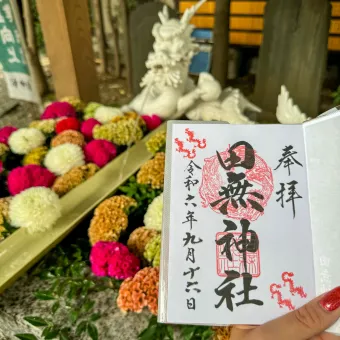 奉拝
田無神社
令和六年九月十六日